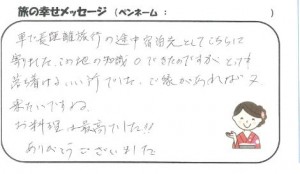 旅の幸せメッセージ（ペンネーム： ）
車で長距離旅行の途中宿泊先としてこちらに
寄れた。この地の知識0できたのですが とても
落ち着ける いい所でした。ご縁があれば 又
来たいですね。
お料理は最高でした!!
ありがとうございました